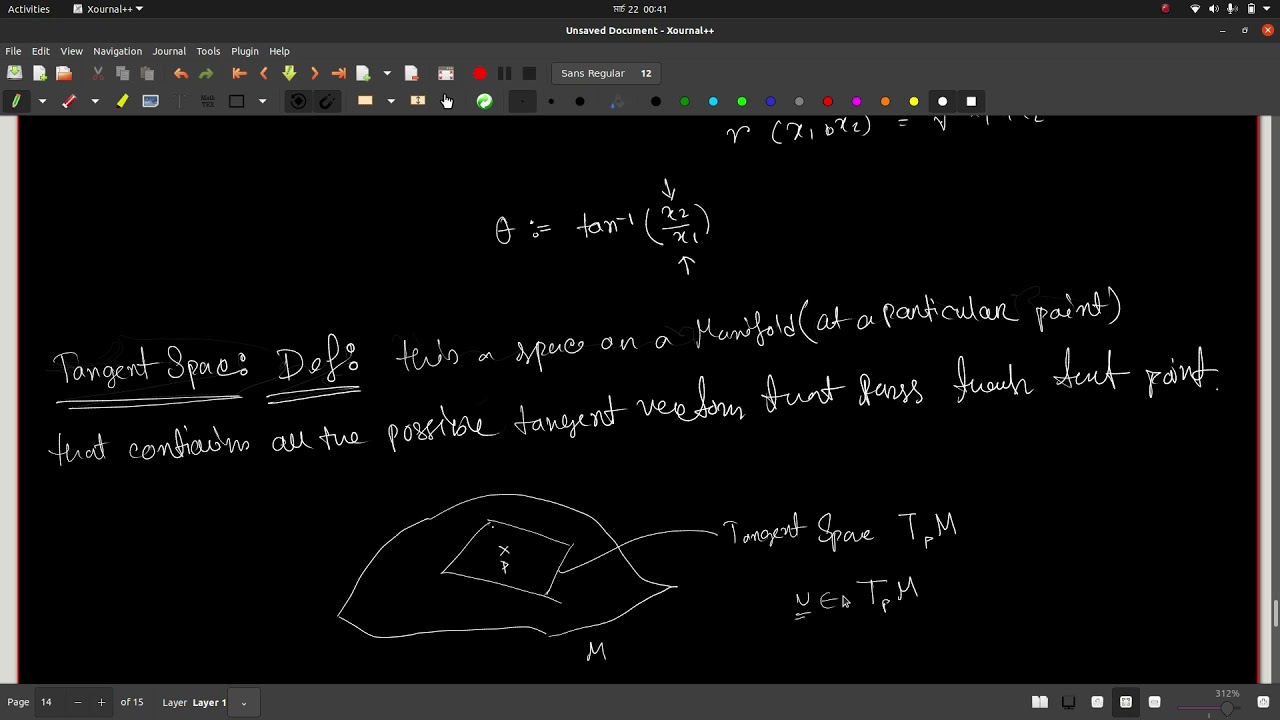 Activities Xournal++ मार्च 22 00:41
Unsaved Document - Xournal++
File Edit View Navigation Journal Tools Plugin Help
Sans Regular 12
r (x₁, x₂) =
θ := tan⁻¹ (x₂/x₁)
Tangent Space: Def: this a space on a Manifold (at a particular point)
that contains all the possible tangent vectors that pass that point.
x
p
Tangent Space TₚM
v ∈ TₚM
M
Page 14 − + of 15 Layer Layer 1 312%